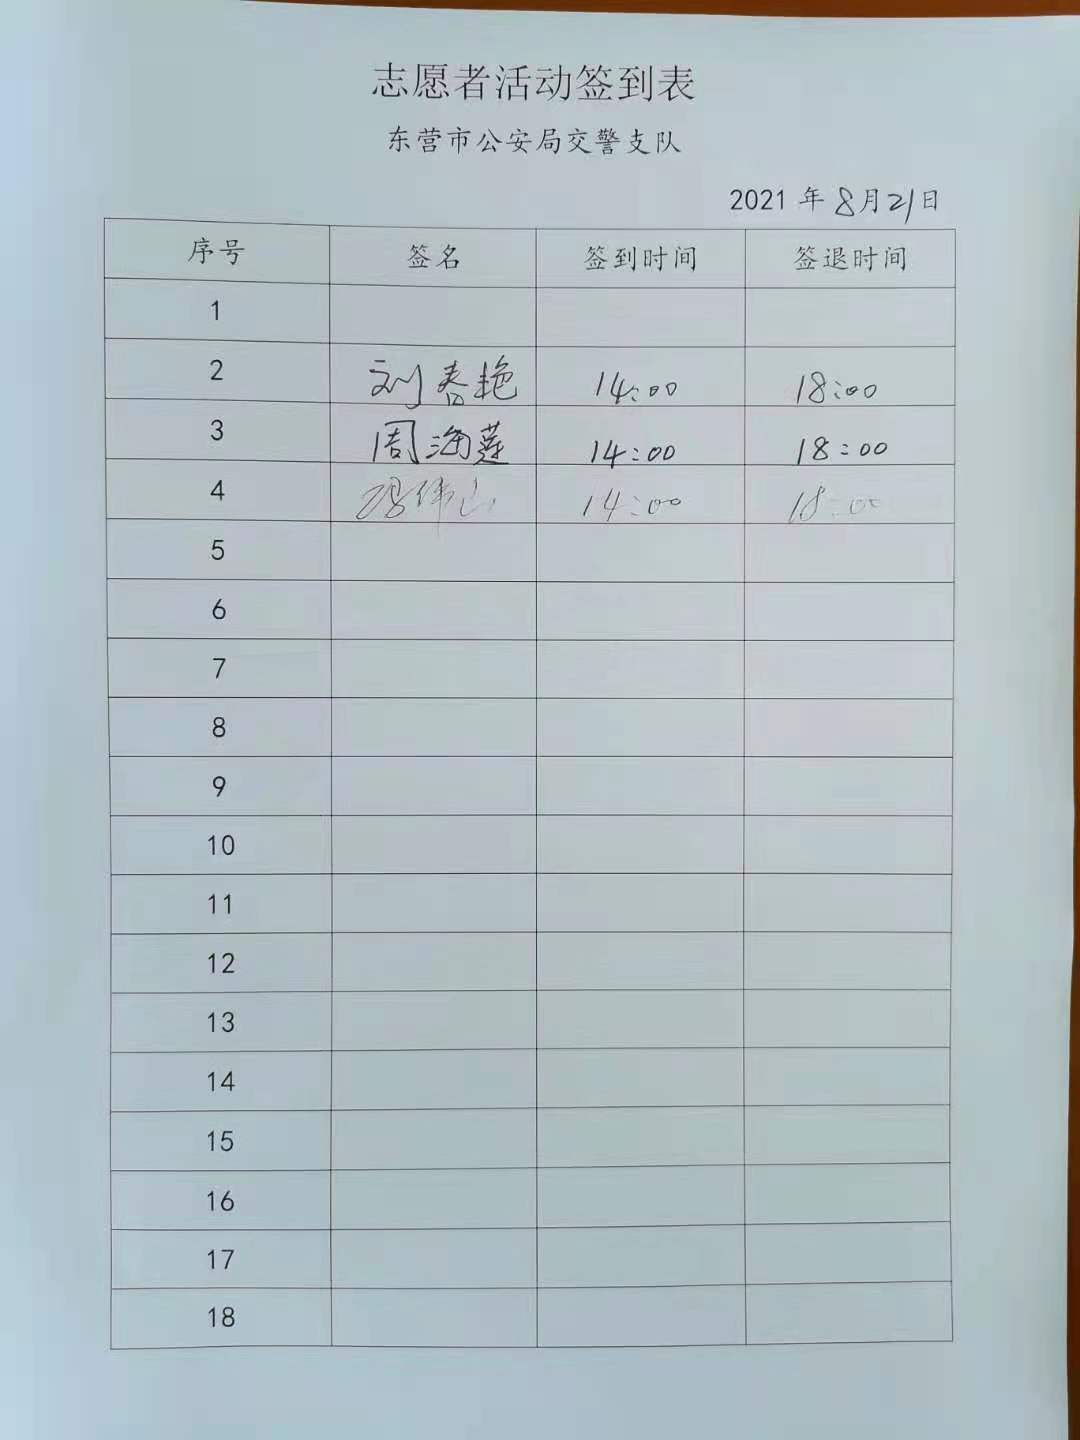 志愿者活动签到表
东营市公安局交警支队
2021 年 8月21日
序号 签名 签到时间 签退时间
1
2 刘春艳 14:00 18:00
3 周海莲 14:00 18:00
4 14:00 18:00
5
6
7
8
9
10
11
12
13
14
15
16
17
18